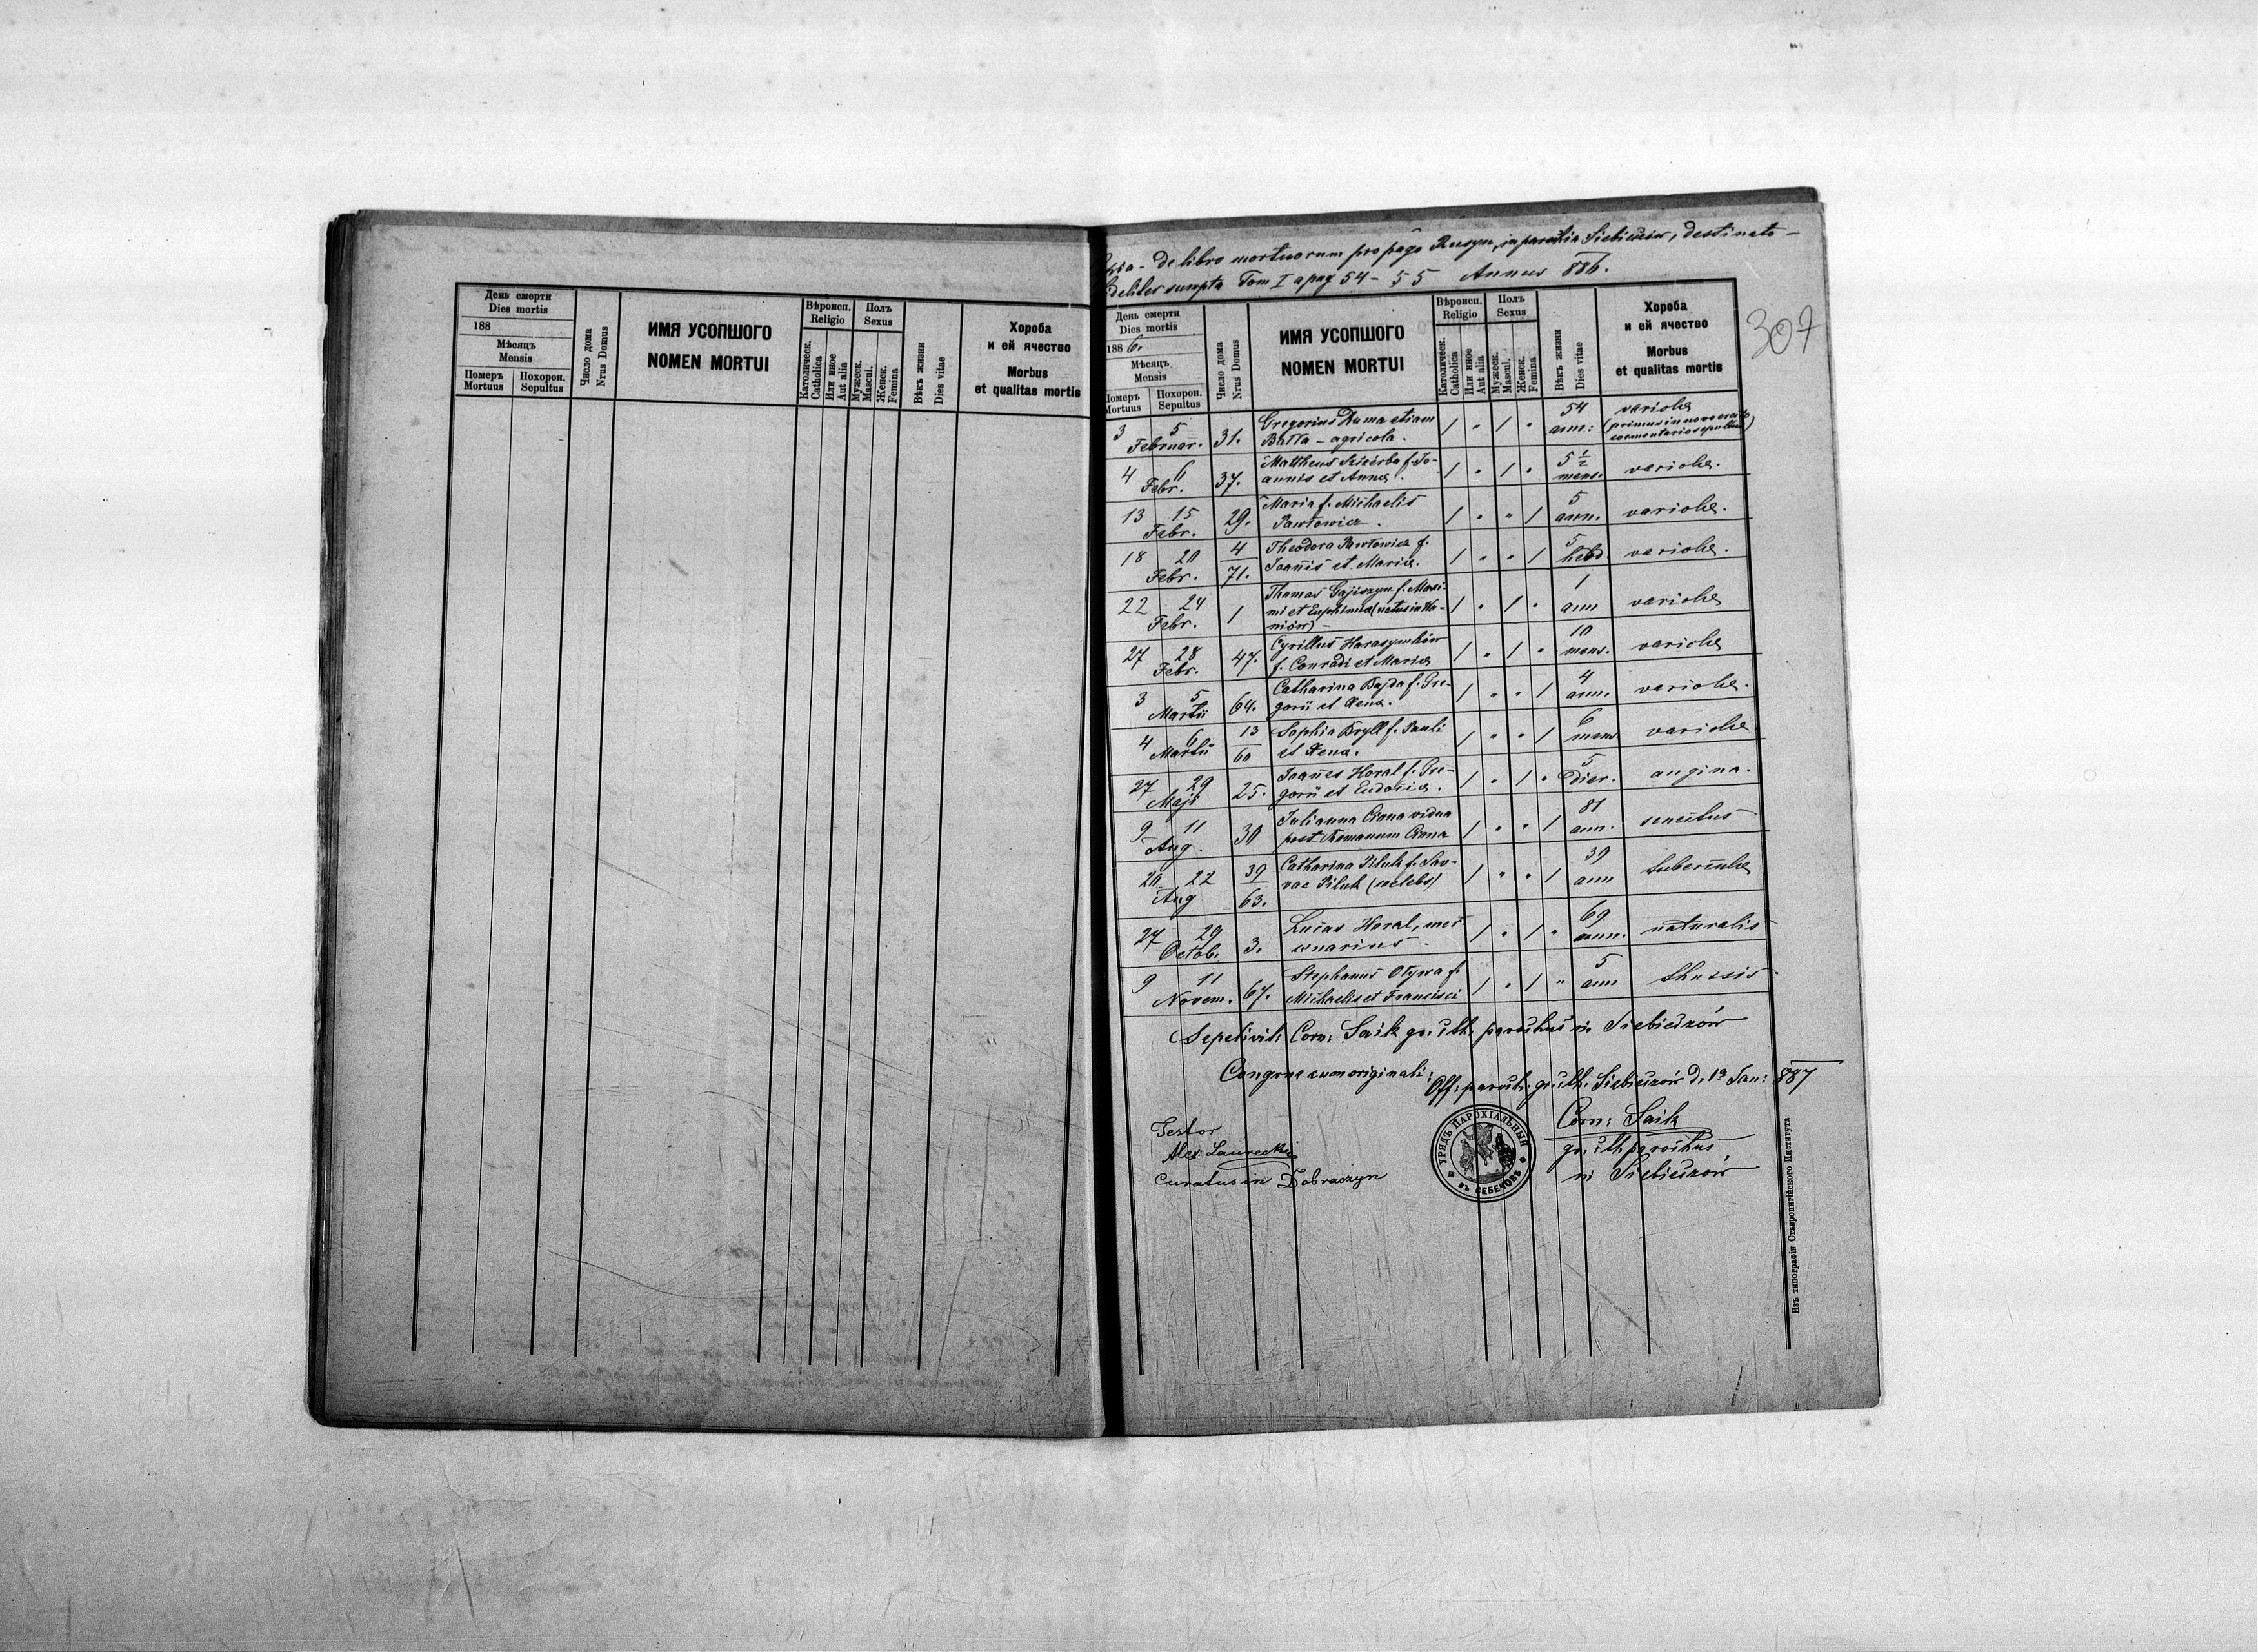 День смерти
Dies mortis
188
Мѣсяцъ
Mensis
Померъ
Mortuus
Похорон.
Sepultus
Число дома
Nrus Domus
ИМЯ УСОПШОГО
NOMEN MORTUI
Вѣроисп.
Religio
Католическ.
Catholica
Или иное
Aut alia
Полъ
Sexus
Мужеск.
Mascul.
Женск.
Femina
Вѣкъ жизни
Dies vitae
Хороба
и ей ячество
Morbus
et qualitas mortis
de libro mortuorum pro pago Rusyn, in parochia Siebieczów, destinato –
sumpta Tom I a pag 54 – 55 Annus 886.
307
День смерти
Dies mortis
188 6.
Мѣсяцъ
Mensis
Померъ
Mortuus
Похорон.
Sepultus
Число дома
Nrus Domus
ИМЯ УСОПШОГО
NOMEN MORTUI
Вѣроисп.
Religio
Католическ.
Catholica
Или иное
Aut alia
Полъ
Sexus
Мужеск.
Mascul.
Женск.
Femina
Вѣкъ жизни
Dies vitae
Хороба
и ей ячество
Morbus
et qualitas mortis
3 5 Gregorius Duma etiam 1 " 1 " 54 variola
Februar. 31. Batta – agricola. ann: (primus in novo
4 6 37. Mattheus Szczerba f. Jo- 1 " 1 " 5 1/2 variola.
Febr. annis et Anna. mens.
13 15 29. Maria f. Michaelis 1 " " 1 5 variola.
Febr. Pawłowicz. ann.
18 20 4 Theodora Pawłowicz f. 1 " " 1 5 variola.
Febr. 71. Joannis et Maria. hebd.
22 24 1 Thomas Gajiszyn f. Maxi- 1 " 1 " 1 variola
Febr. mi et Euphemia (natus in Wa- ann
niów) –
27 28 47. Cyrillus Harasymków 1 " 1 " 10 variola
Febr. f. Conradi et Maria mens.
3 5 64. Catharina Bajda f. Gre- 1 " " 1 4 variola.
Martii gorii et Xena. ann.
4 6 13 Sophia Bryll f. Pauli 1 " " 1 6 variola.
Martii 60 et Xena. mens
27 29 25. Joannes Horal f. Gre- 1 " 1 " 5 angina.
Maji gorii et Eudocia. dier.
9 11 30 Julianna vidua 1 " " 1 81 senectus
Aug. post Romanum ann.
20 22 39 Catharina Piluk f. Sav- 1 " " 1 39 tubercula
Aug 63. vae Piluk (caelebs) ann
27 29 3. Lucas Horal, mer 1 " 1 " 69 naturalis
Octob. cenarius. ann.
9 11 67. Stephanus Olywa f. 1 " 1 " 5 thussis
Novem. Michaelis et Francisci ann
Sepelivit: Corn: Saik gr. cth. parochus in Siebieczów
Congrua cum originali:
Off: paroch. gr. cth. Siebieczów d. 1a Jan: 887
Testor
Alex. Laurecki
Curatus in Dobraczyn
УРЯДЪ ПАРОХІАЛЬНЫЙ
ВЪ СЕБЕЧОВѢ
Corn: Saik
gr. cth parochus
in Siebieczów
Изъ типографіи Ставропигійского Института